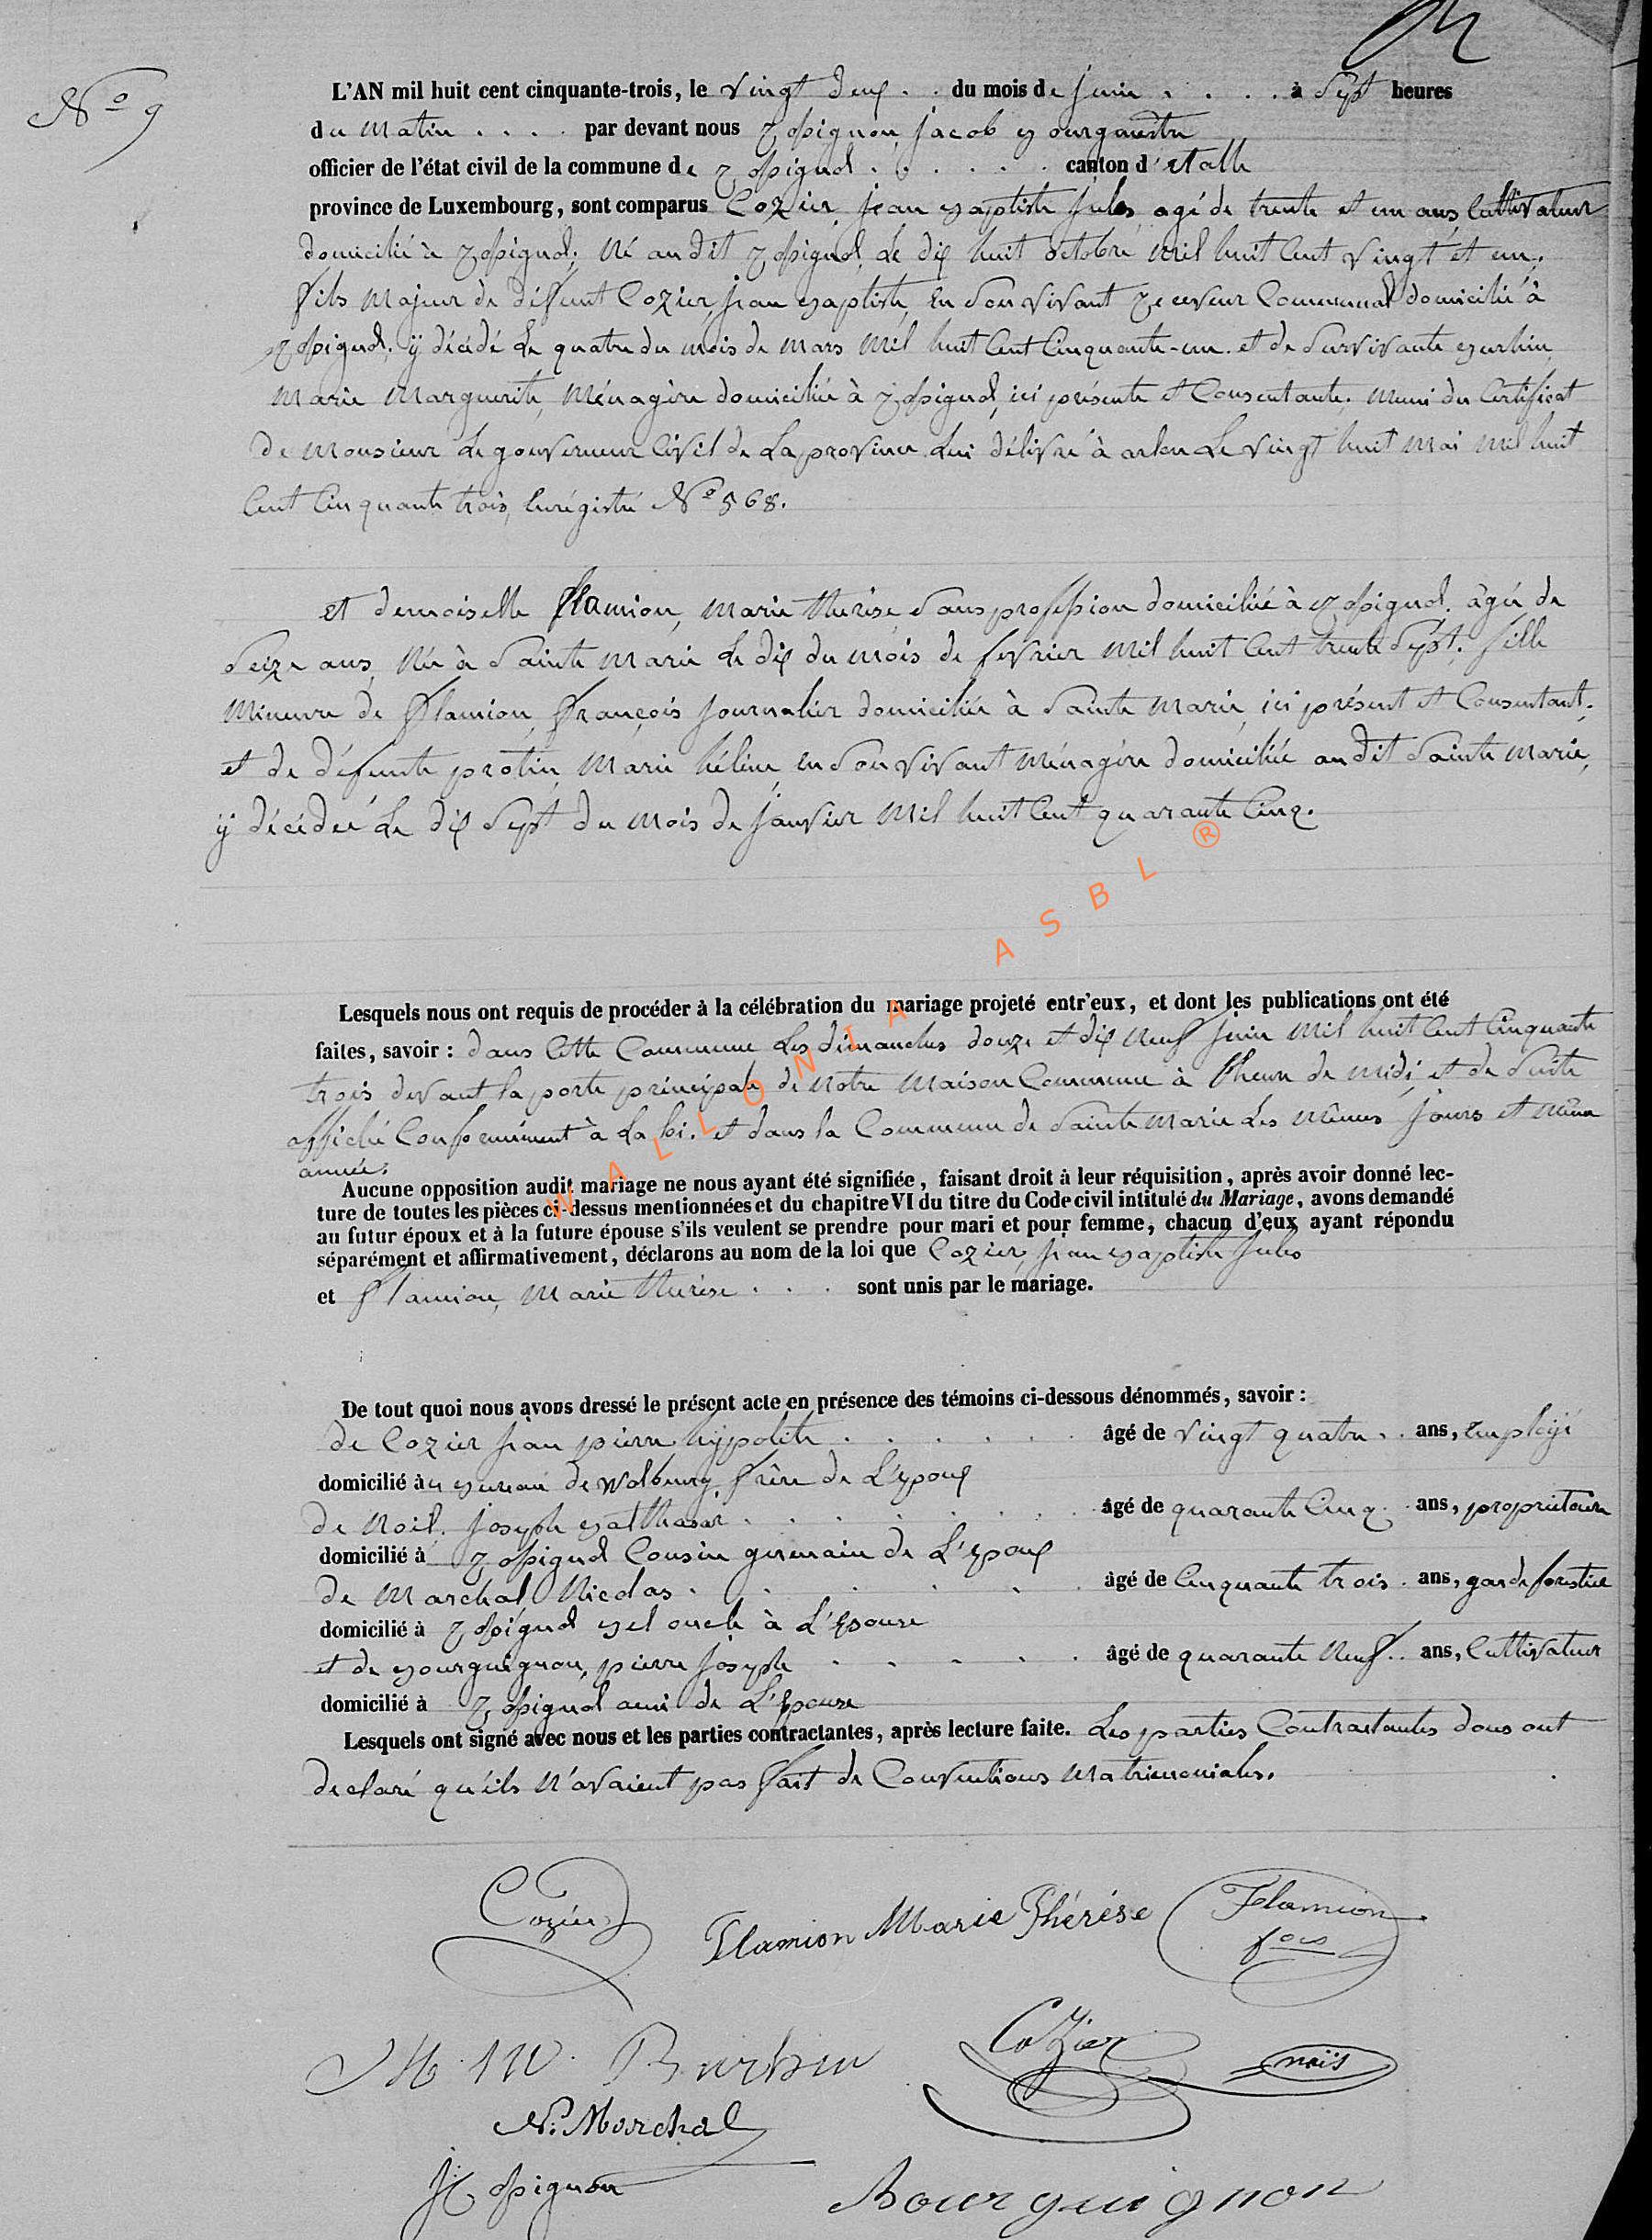 N° 9
L'AN mil huit cent cinquante-trois, le vingt deux . . du mois de juin . . . . à sept heures
du matin . . . . par devant nous Rossignon, Jacob Bourgmestre
officier de l'état civil de la commune de Rossignol . . . . . canton d'Etalle
province de Luxembourg, sont comparus Cozier, Jean Baptiste Jules, agé de trente et un ans, Cultivateur
domicilié à Rossignol; né au dit Rossignol, le dix huit octobre mil huit cent vingt et un;
fils majeur de défunt Cozier, Jean Baptiste, en son vivant Receveur Communal domicilié à
Rossignol. ÿ décédé le quatre du mois de mars mil huit cent cinquante-un. et de survivante Burhin
Marie Marguerite, Ménagère domiciliée à Rossignol, ici présente et Consentante. muni du Certificat
de Monsieur le gouverneur Civil de la province lui délivré à arlon le vingt huit mai mil huit
cent cinquante trois, enrégistré N° 568.
et demoiselle flamion, marie thérèse sans profession domiciliée à Rossignol. âgée de
seize ans, Née à Sainte Marie le dix du mois de fevrier mil huit cent trente sept. fille
Mineure de flamion, françois Journalier domicilié à Sainte Marie, ici présent et Consentant.
et de défunte protin Marie hélène en son vivant ménagère domiciliée au dit Sainte Marie,
ÿ décédée le dix sept du mois de janvier mil huit cent quarante cinq.
Lesquels nous ont requis de procéder à la célébration du mariage projeté entr'eux, et dont les publications ont été
faites, savoir : dans cette Commune les dimanches douze et dix neuf juin mil huit cent cinquante
trois devant la porte principale de notre Maison Commune à l'heure de midi, et de suite
affiché Conformément à la loi. et dans la Commune de Sainte Marie les mêmes jours et même
année.
Aucune opposition audit mariage ne nous ayant été signifiée, faisant droit à leur réquisition, après avoir donné lec-
ture de toutes les pièces ci-dessus mentionnées et du chapitre VI du titre du Code civil intitulé du Mariage, avons demandé
au futur époux et à la future épouse s'ils veulent se prendre pour mari et pour femme, chacun d'eux ayant répondu
séparément et affirmativement, déclarons au nom de la loi que Cozier, Jean Baptiste Jules
et flamion, Marie thérèse . . . sont unis par le mariage.
De tout quoi nous avons dressé le présent acte en présence des témoins ci-dessous dénommés, savoir :
de Cozier Jean pierre hÿpolite . . . . . . âgé de vingt quatre . . ans, Employé
domicilié au Bureau de Wolberg, frère de L'Epoux
de Noël. Joseph Balthasar . . . . . . âgé de quarante cinq . ans, propriétaire
domicilié à Rossignol Cousin germain de L'epoux
de Marchal, Nicolas . . . . . âgé de cinquante trois . ans, garde forestier
domicilié à Rossignol Bel oncle à L'Epouse
et de Bourguignon, pierre Joseph . . . . . âgé de quarante neuf . . ans, Cultivateur
domicilié à Rossignol ami de L'Epouse
Lesquels ont signé avec nous et les parties contractantes, après lecture faite. Les parties Contractantes nous ont
declaré qu'ils n'avaient pas fait de Conventions Matrimoniales.
Cozier Flamion Marie Thérése Flamion fois
M. M. Burhin Cozier noïs
N. Marchal
J Rossignon Bourguignon
WALLONIA ASBL ®